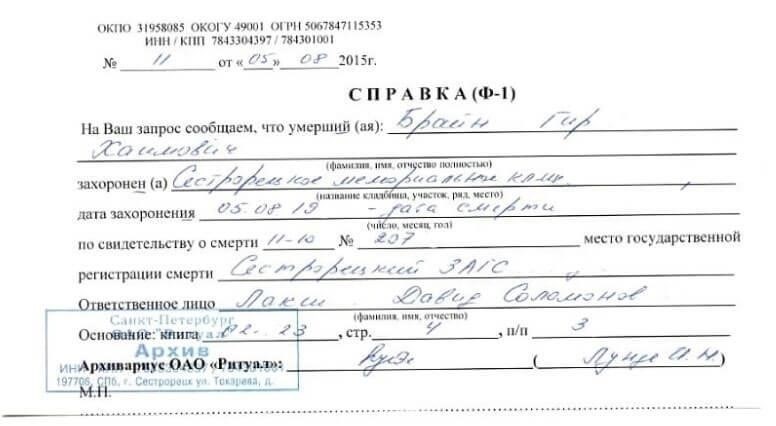 ОКПО 31958085 ОКОГУ 49001 ОГРН 5067847115353
ИНН / КПП 7843304397 / 784301001
№ 11 от «05» 08 2015г.
С П Р А В К А (Ф-1)
На Ваш запрос сообщаем, что умерший (ая): Брайн Гир
Хаимович
(фамилия, имя, отчество полностью)
захоронен (а) Сестрорецкое мемориальное
(название кладбища, участок, ряд, место)
дата захоронения 05.08.19 - дата смерти
(число, месяц, год)
по свидетельству о смерти 11-10 № 207 место государственной
регистрации смерти Сестрорецкий ЗАГС
Ответственное лицо Давид Соломонов
(фамилия, имя, отчество)
Основание: книга 02-23, стр. 4, п/п 3
Санкт-Петербург
Архив
Архивариус ОАО «Ритуал»:
197706, СПб, г. Сестрорецк ул. Токарева, д.
М.П.